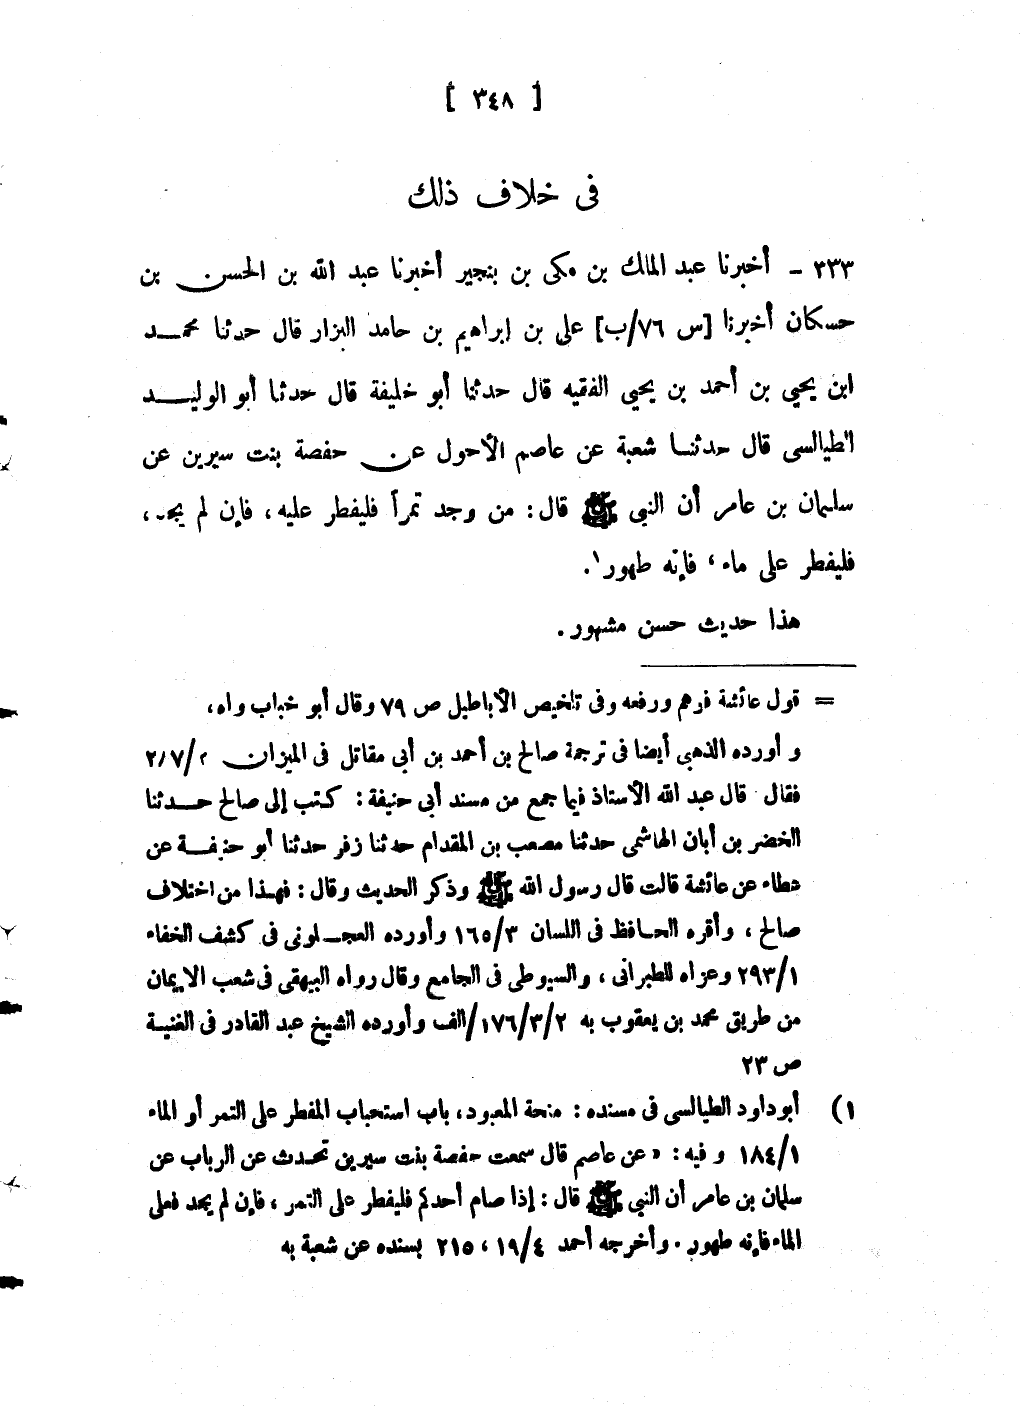 [ ٣٤٨ ]
فى خلاف ذلك
٣٣٣ – أخبرنا عبد المالك بن مكى بن بنجير أخبرنا عبد الله بن الحسن بن
حسكان أخبرنا [س ٧٦/ب] على بن إبراهيم بن حامد البزار قال حدثنا محمد
ابن يحيى بن أحمد بن يحيى الفقيه قال حدثنا أبو خليفة قال حدثنا أبو الوليد
الطيالسى قال حدثنا شعبة عن عاصم الأحول عن حفصة بنت سيرين عن
سلمان بن عامر أن النبى ﷺ قال: من وجد تمراً فليفطر عليه، فإن لم يجد،
فليفطر على ماء، فإنه طهور١.
هذا حديث حسن مشهور.
= قول عائشة فوهم ورفعه وفى تلخيص الأباطيل ص ٧٩ وقال أبو خباب واه،
و أورده الذهبى أيضا فى ترجمة صالح بن أحمد بن أبي مقاتل فى الميزان
فقال قال عبد الله الأستاذ فيما جمع من مسند أبى حنيفة: كتب إلى صالح حدثنا
الخضر بن أبان الهاشمى حدثنا مصعب بن المقدام حدثنا زفر حدثنا أبو حنيفة عن
عطاء عن عائشة قالت قال رسول الله ﷺ وذكر الحديث وقال: فهذا من اختلاف
صالح، وأقره الحافظ فى اللسان ١٦٥/٣ وأورده العجلونى فى كشف الخفاء
٢٩٣/١ وعزاه للطبرانى، والسيوطى فى الجامع وقال رواه البيهقى فى شعب الايمان
من طريق محمد بن يعقوب به ١٧٦/٣/٢/الف وأورده الشيخ عبد القادر فى الغنية
ص ٢٣
١) أبوداود الطيالسى فى مسنده: منحة المعبود، باب استحباب المفطر على التمر أو الماء
١٨٤/١ و فيه: «عن عاصم قال سمعت حفصة بنت سيرين تحدث عن الرباب عن
سلمان بن عامر أن النبى ﷺ قال: إذا صام أحدكم فليفطر على التمر، فإن لم يجد فعلى
الماء فإنه طهور. وأخرجه أحمد ١٩/٤، ٢١٥ بسنده عن شعبة به